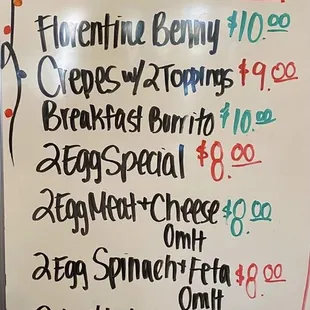 Florentine Benny $10.00
Crepes w/ 2 Toppings $9.00
Breakfast Burrito $10.00
2 Egg Special $8.00
2 Egg Meat + Cheese $8.00
Omlt
2 Egg Spinach + Feta $8.00
Omlt